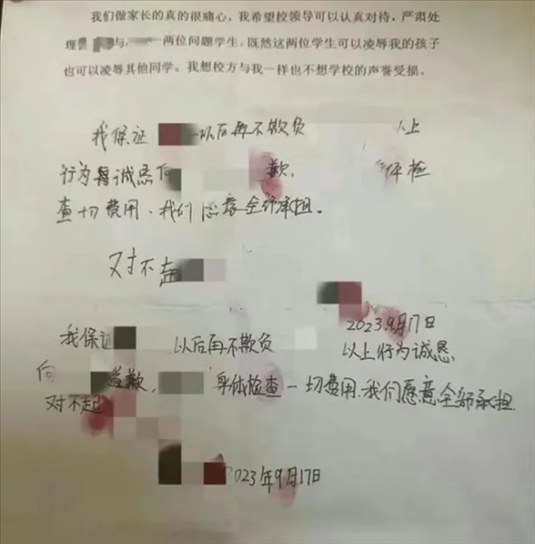 我们做家长的真的很痛心，我希望校领导可以认真对待，严肃处
理 与 两位问题学生。既然这两位学生可以凌辱我的孩子
也可以凌辱其他同学。我想校方与我一样也不想学校的声誉受损。
我保证 以后再不欺负 以上
行为 诚恳向 歉， 体检
查一切费用、我们愿意全部承担。
对不起
2023.9月17日
我保证 以后再不欺负 以上行为诚恳
向 道歉， 身体检查一切费用.我们愿意全部承担
对不起
023年9月17日